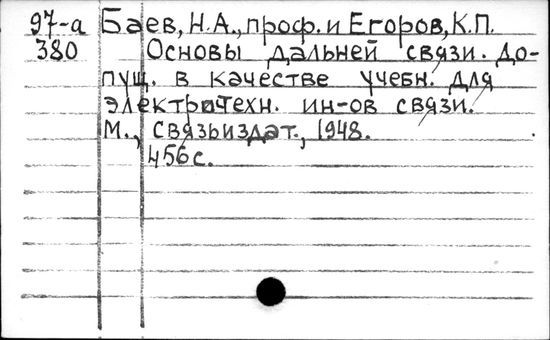 97-а Баев, Н.А., проф. и Егоров, К.П.
380 Основы дальней связи. До-
пущ. в качестве учебн. для
электротехн. ин-ов связи.
М., Связьиздат., 1948.
456с.